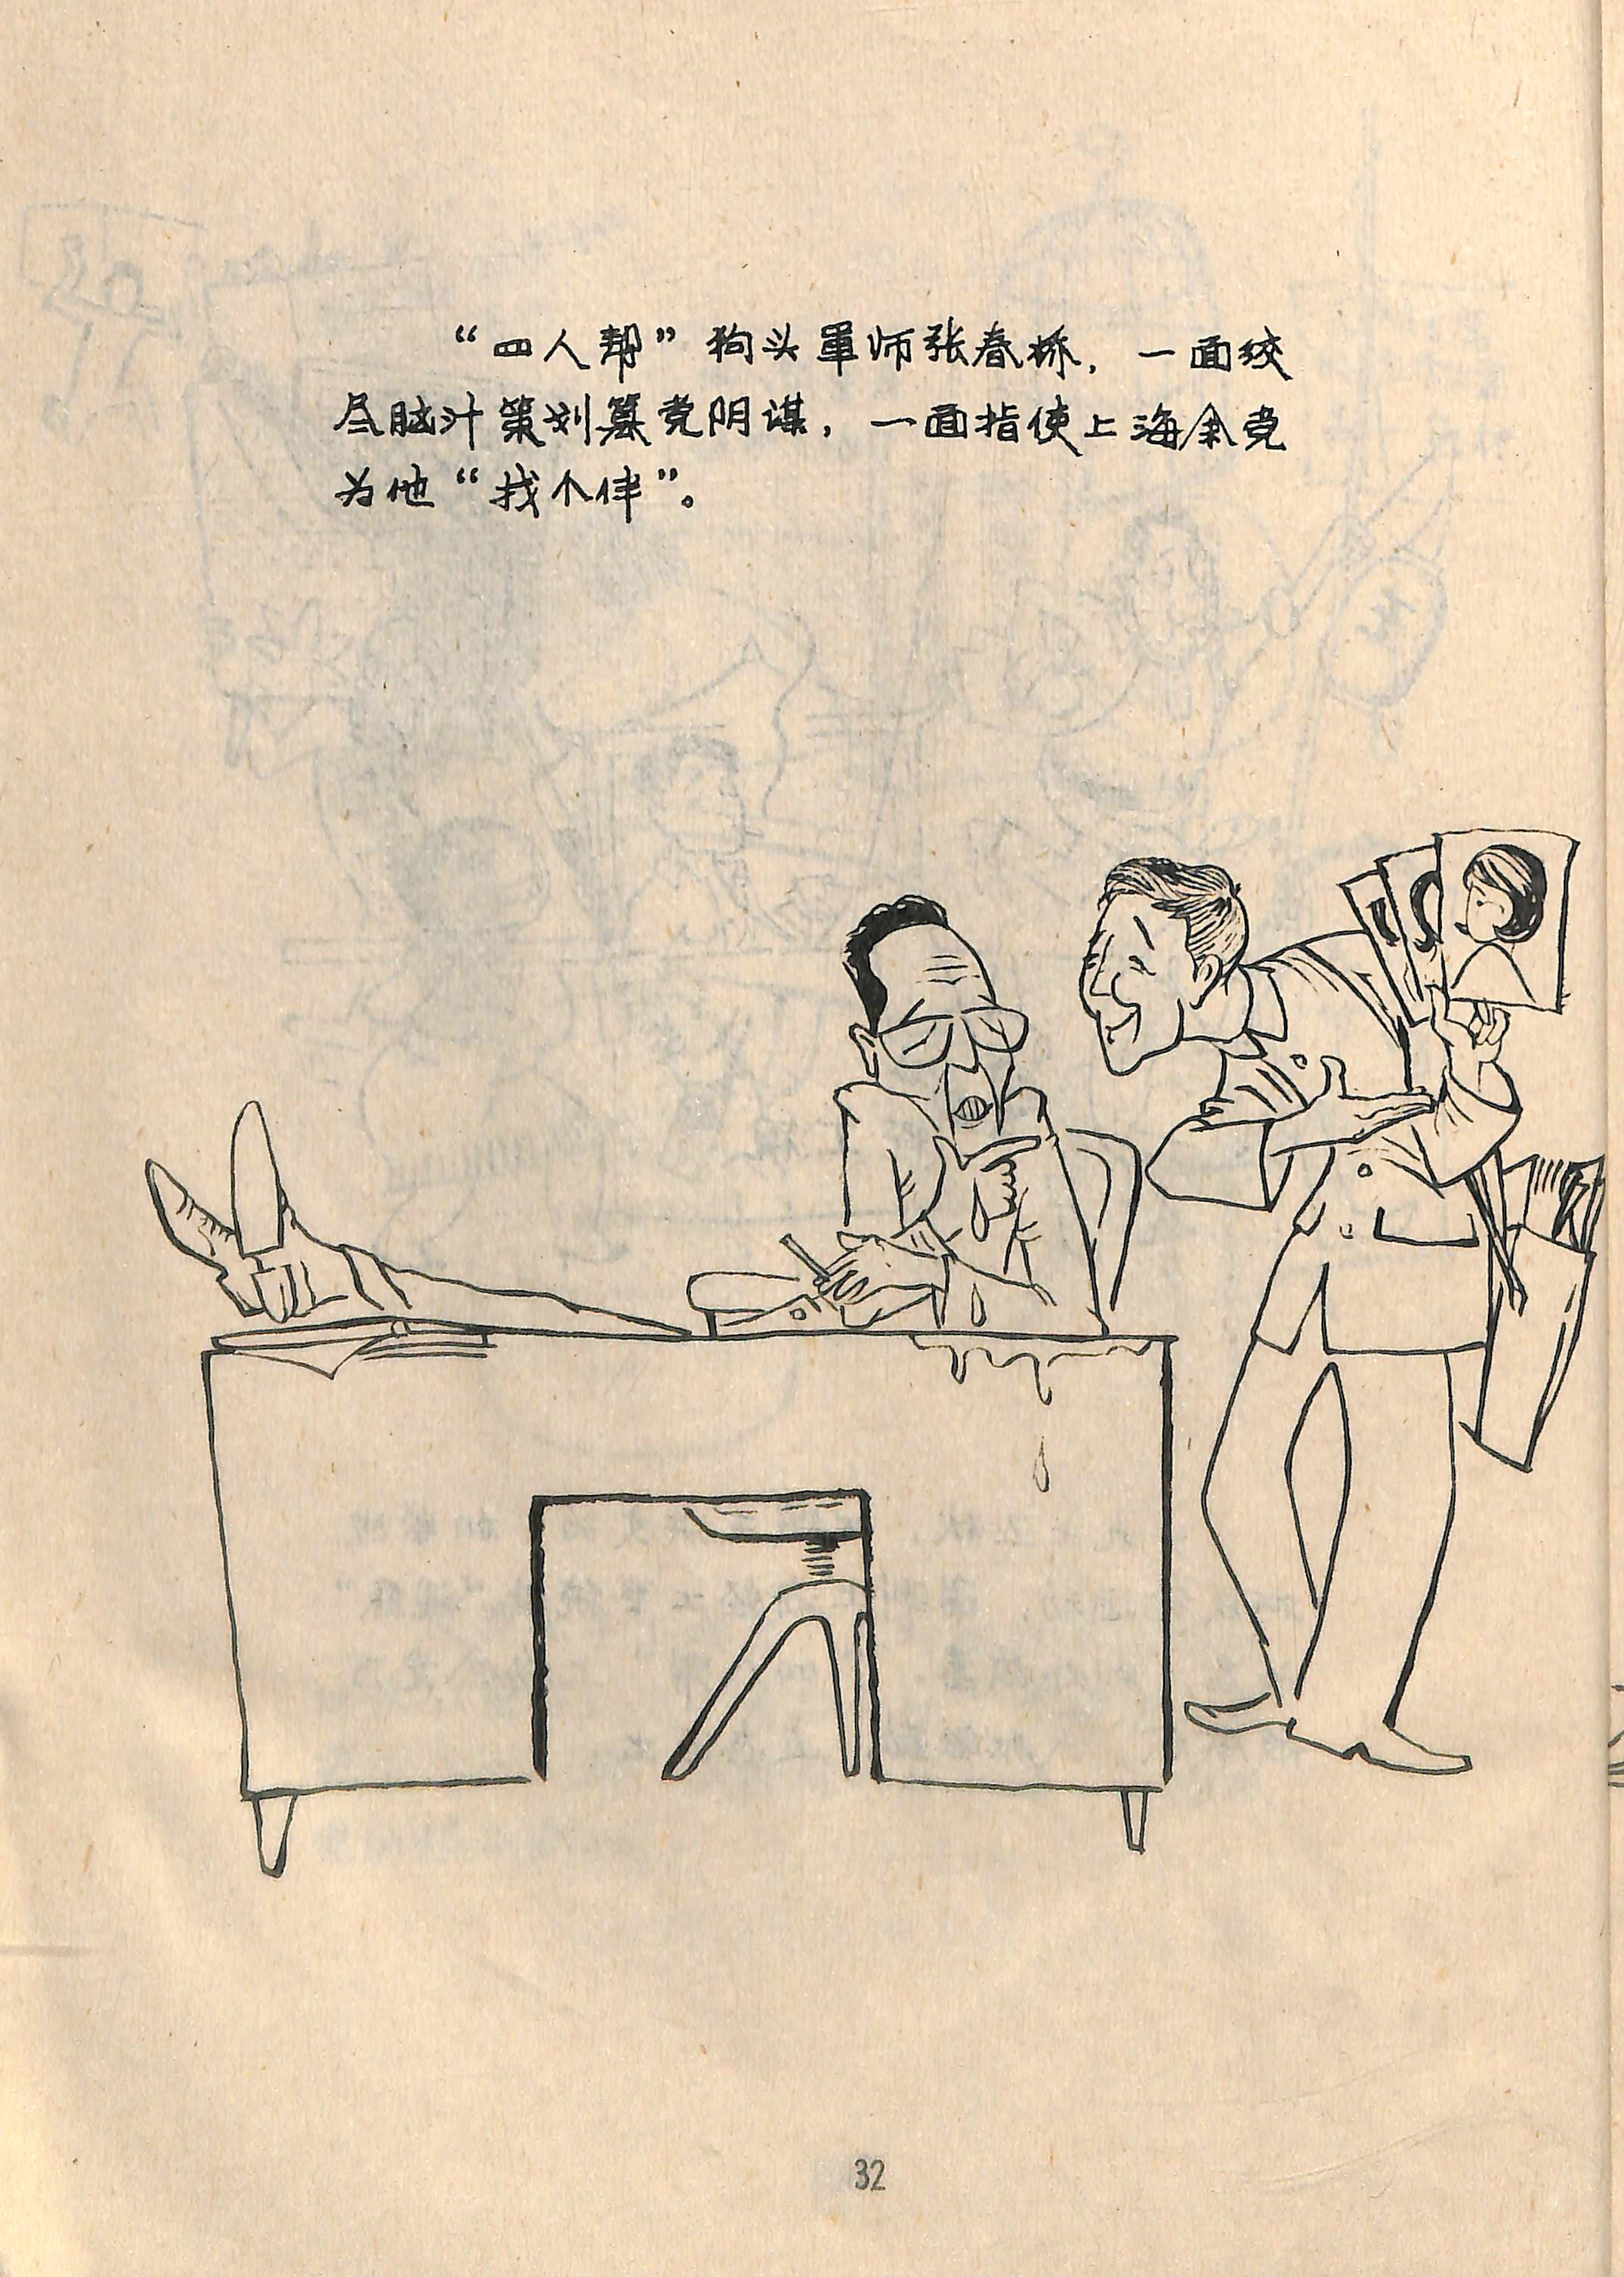 “四人帮”狗头军师张春桥，一面绞
尽脑汁策划篡党阴谋，一面指使上海余党
为他“找个伴”。
32